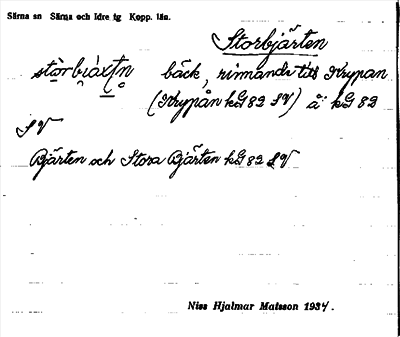 Särna sn Särna och Idre tg Kopp. län.
Storbjärten
bäck, rinnande till Krypan
(Krypån kG 82 SV) å: kG 82
SV
Bjärten och Stora Bjärten kG 82 SV
Niss Hjalmar Matsson 1937.